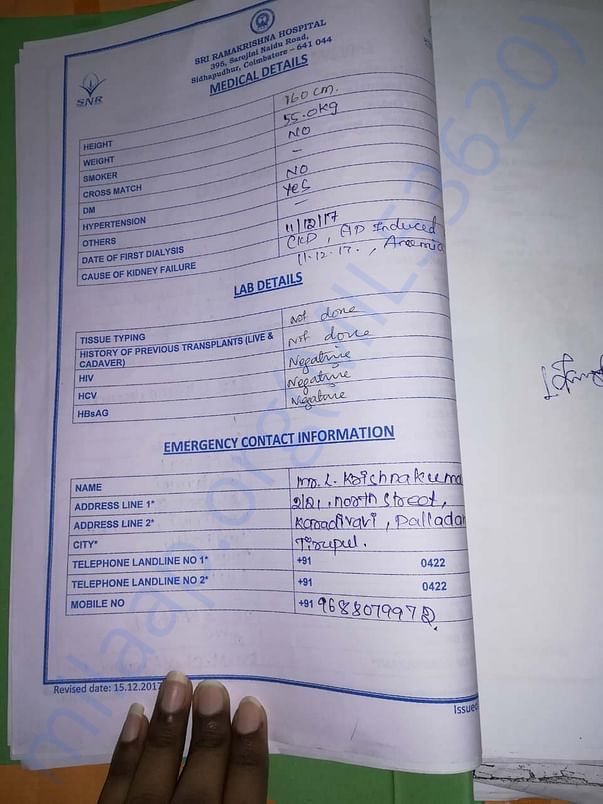 SRI RAMAKRISHNA HOSPITAL
395, Sarojini Naidu Road,
Sidhapudhur, Coimbatore – 641 044
SNR
MEDICAL DETAILS
HEIGHT 160 cm.
WEIGHT 55.0kg
SMOKER NO
CROSS MATCH –
DM NO
HYPERTENSION Yes
OTHERS –
DATE OF FIRST DIALYSIS 11/12/17
CAUSE OF KIDNEY FAILURE CKD, AD Induced
11.12.17. ,
LAB DETAILS
TISSUE TYPING not done
HISTORY OF PREVIOUS TRANSPLANTS (LIVE & CADAVER) not done
HIV Negative
HCV Negative
HBsAG Negative
EMERGENCY CONTACT INFORMATION
NAME Mr. L. Krishnakuma
ADDRESS LINE 1* 2/21, North Street,
ADDRESS LINE 2* Karadivavi, Palladam
CITY* Tirupul.
TELEPHONE LANDLINE NO 1* +91 0422
TELEPHONE LANDLINE NO 2* +91 0422
MOBILE NO +91
Revised date: 15.12.2017
Issued